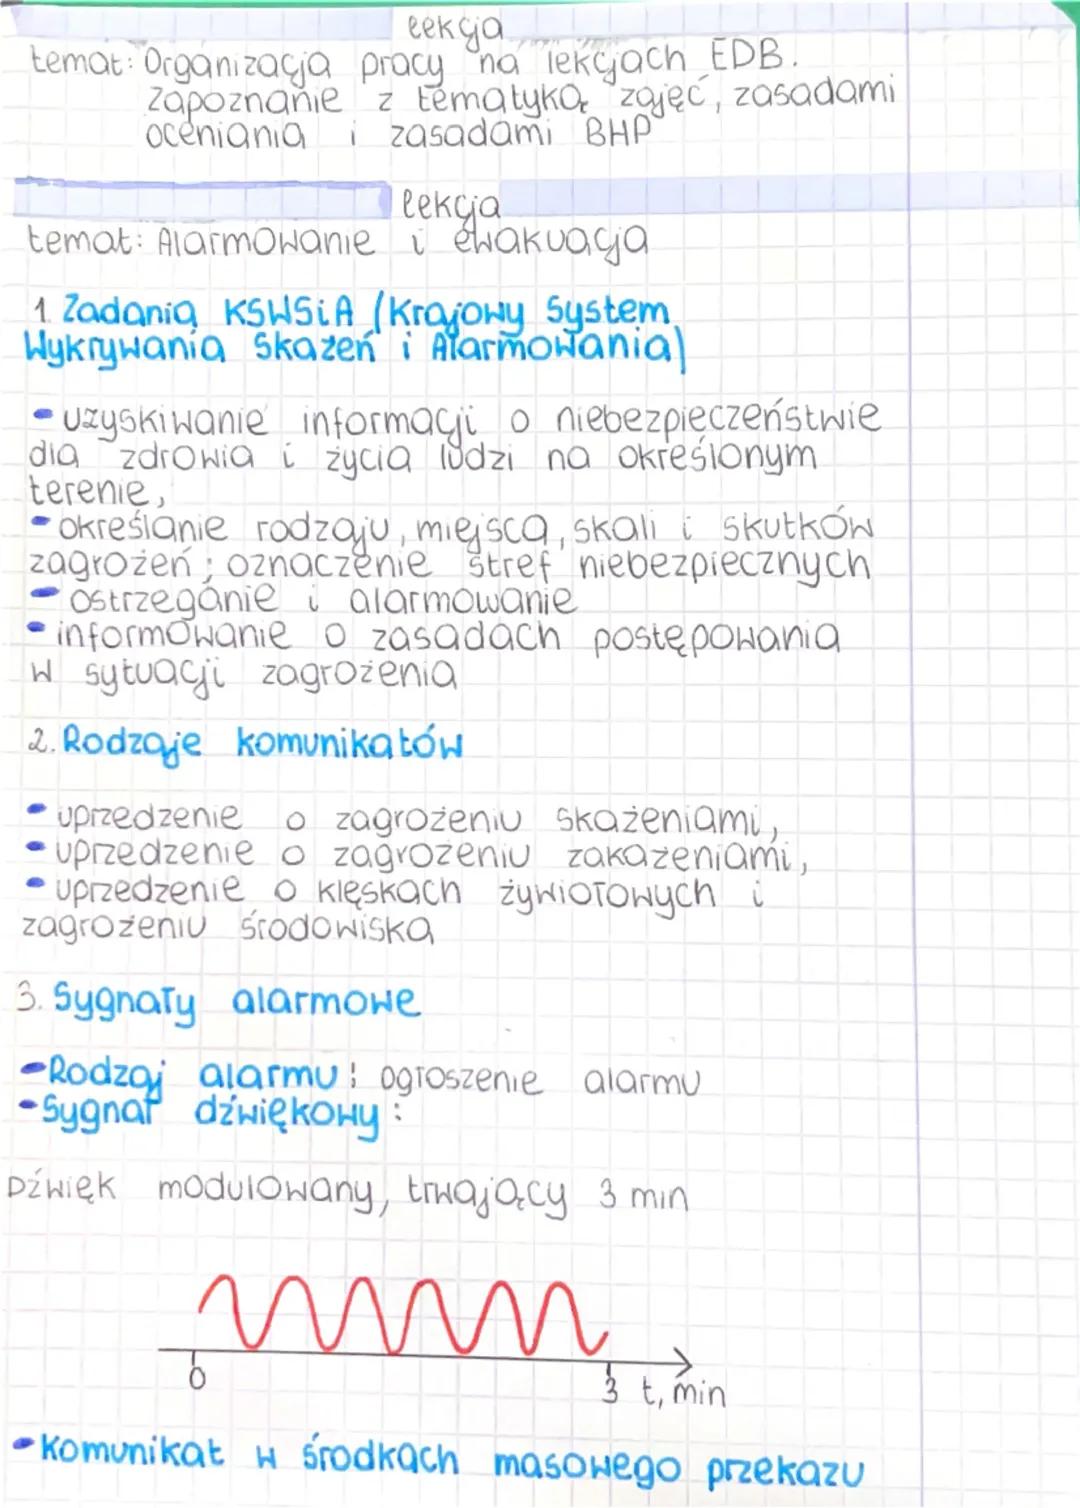 lekcja
temat: Organizacja pracy na lekcjach EDB.
Zapoznanie z tematyką zajęć, zasadami
oceniania i zasadami BHP
lekcja
temat: Alarmowanie i ewakuacja
1. Zadania KSWSiA (Krajowy System
Wykrywania Skażeń i Alarmowania)
- uzyskiwanie informacji o niebezpieczeństwie
dla zdrowia i życia ludzi na określonym
terenie,
- określanie rodzaju, miejsca, skali i skutków
zagrożeń; oznaczenie stref niebezpiecznych
- ostrzeganie i alarmowanie
- informowanie o zasadach postępowania
w sytuacji zagrożenia
2. Rodzaje komunikatów
- uprzedzenie o zagrożeniu skażeniami,
- uprzedzenie o zagrożeniu zakażeniami,
- uprzedzenie o klęskach żywiołowych i
zagrożeniu środowiska
3. Sygnały alarmowe
- Rodzaj alarmu: ogłoszenie alarmu
- Sygnał dźwiękowy:
Dźwięk modulowany, trwający 3 min
0 3 t, min
- Komunikat w środkach masowego przekazu